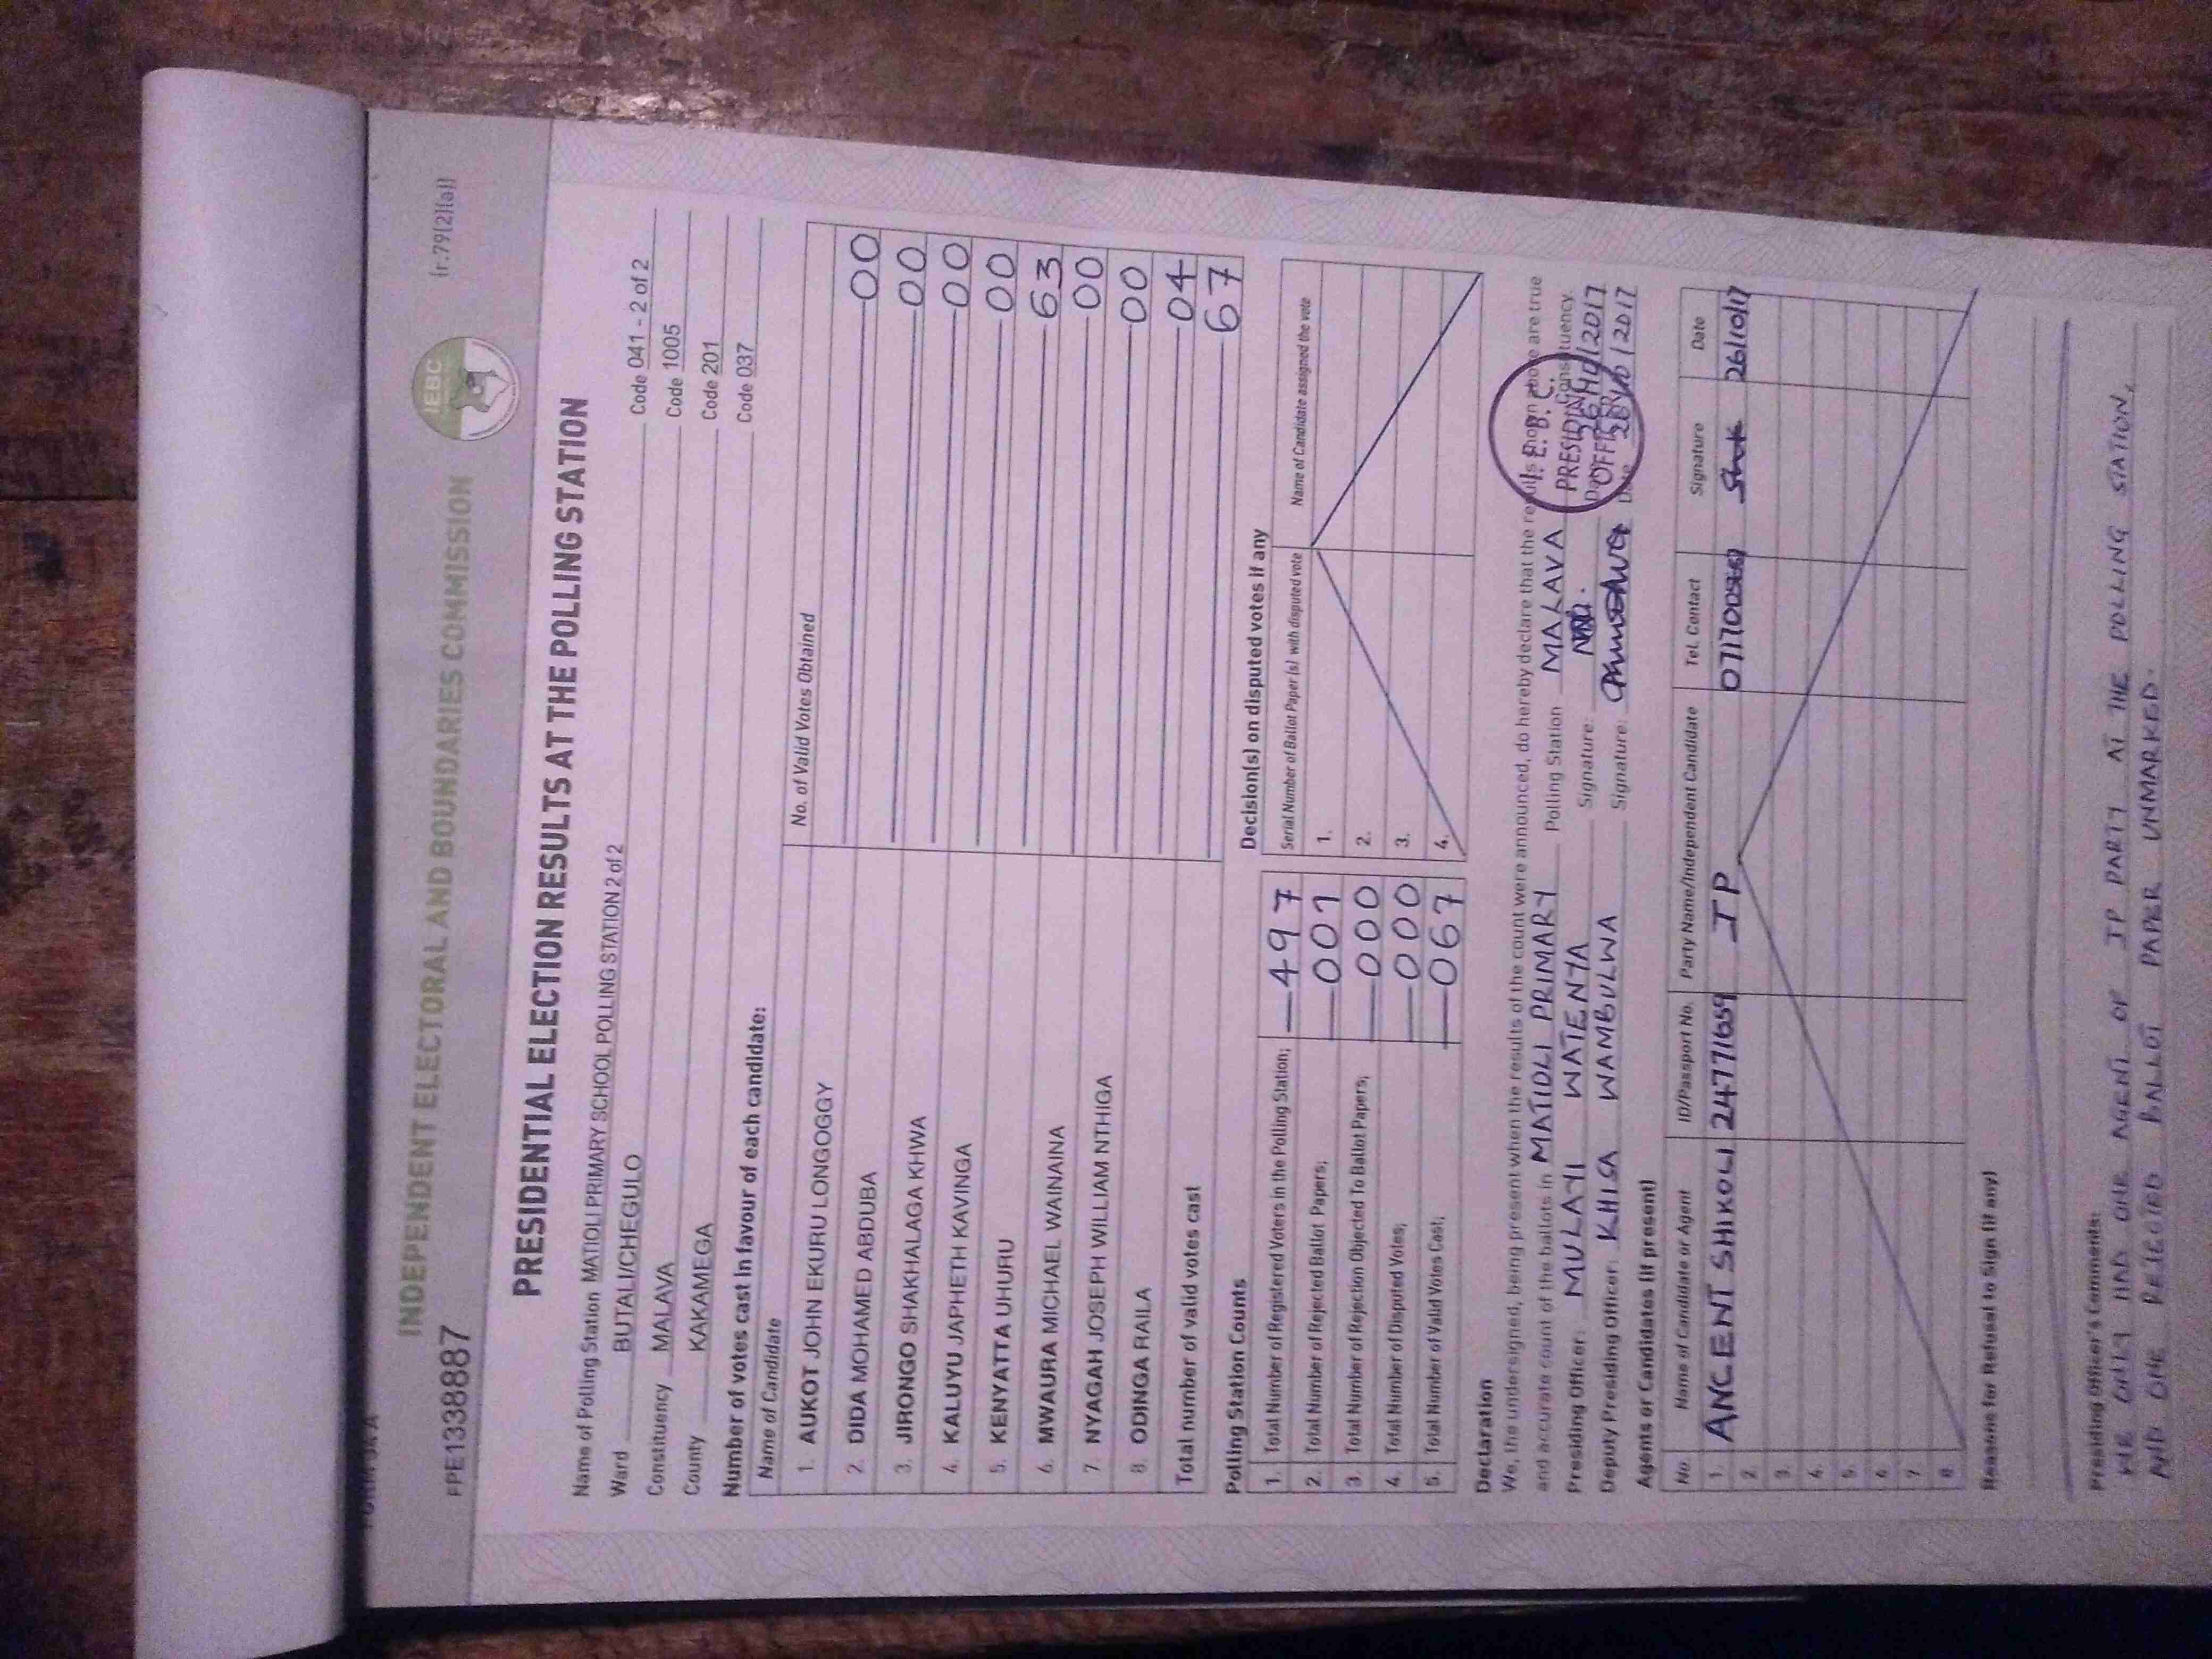 FORM 34 A
INDEPENDENT ELECTORAL AND BOUNDARIES COMMISSION
IEBC
(r.79(2)(a))
FPE1338887
PRESIDENTIAL ELECTION RESULTS AT THE POLLING STATION
Name of Polling Station MATIOLI PRIMARY SCHOOL POLLING STATION 2 of 2 Code 041 - 2 of 2
Ward BUTALI/CHEGULO Code 1005
Constituency MALAVA Code 201
County KAKAMEGA Code 037
Number of votes cast in favour of each candidate:
Name of Candidate No. of Valid Votes Obtained
1. AUKOT JOHN EKURU LONGOGGY 00
2. DIDA MOHAMED ABDUBA 00
3. JIRONGO SHAKHALAGA KHWA 00
4. KALUYU JAPHETH KAVINGA 00
5. KENYATTA UHURU 63
6. MWAURA MICHAEL WAINAINA 00
7. NYAGAH JOSEPH WILLIAM NTHIGA 00
8. ODINGA RAILA 04
Total number of valid votes cast 67
Polling Station Counts
1. Total Number of Registered Voters in the Polling Station; 497
2. Total Number of Rejected Ballot Papers; 001
3. Total Number of Rejection Objected To Ballot Papers; 000
4. Total Number of Disputed Votes; 000
5. Total Number of Valid Votes Cast; 067
Decision(s) on disputed votes if any
Serial Number of Ballot Paper (s) with disputed vote Name of Candidate assigned the vote
1.
2.
3.
4.
Declaration
We, the undersigned, being present when the results of the count were announced, do hereby declare that the results shown above are true
and accurate count of the ballots in MATIOLI PRIMARY Polling Station MALAVA Constituency.
Presiding Officer: MULAYI WATENYA Signature: Date 26/10/2017
Deputy Presiding Officer: KHISA WAMBULWA Signature: Date 26/10/2017
I. E. B. C.
PRESIDING
OFFICER
Agents or Candidates (if present)
No. Name of Candidate or Agent ID/Passport No. Party Name/Independent Candidate Tel. Contact Signature Date
1. ANCENT SHIKOLI 24771659 JP 26/10/17
2.
3.
4.
5.
6
7
8
Reason for Refusal to Sign (if any)
Presiding Officer's Comments:
WE ONLY HAD ONE AGENT OF JP PARTY AT THE POLLING STATION,
AND ONE REJECTED BALLOT PAPER UNMARKED.